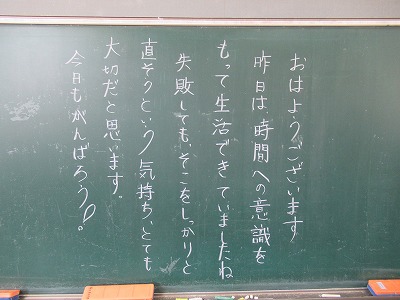 おはようございます
昨日は時間への意識を
もって生活できていましたね
失敗しても、そこをしっかりと
直そうという気持ち、とても
大切だと思います。
今日もがんばろう!。